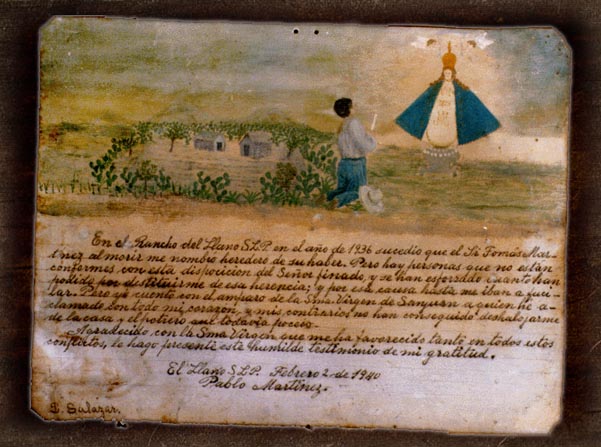 En el Rancho del Llano S.L.P. en el año de 1936 sucedio que el Sr. Tomás Mar-
tinez al morir me nombró heredero de su haber. Pero hay personas que no están
conformes con esta disposicion del Señor finado, y se han esforzado cuanto han
podido por destituirme de esa herencia; y por esa causa hasta me iban a fusi-
lar. Pero yo cuento con el amparo de la Sma. Virgen de Sanjuan a quien he a-
clamado con todo mi corazón, y mis contrarios no han conseguido deshalojarme
de la casa y el potrero que todavía poceso.
Agradecido con la Sma. Virgen que me ha favorecido tanto en todos estos
conflictos, le hago presente este humilde testimonio de mi gratitud.
El Llano S.L.P. Febrero 2 de 1940
Pablo Martínez.
Salazar.